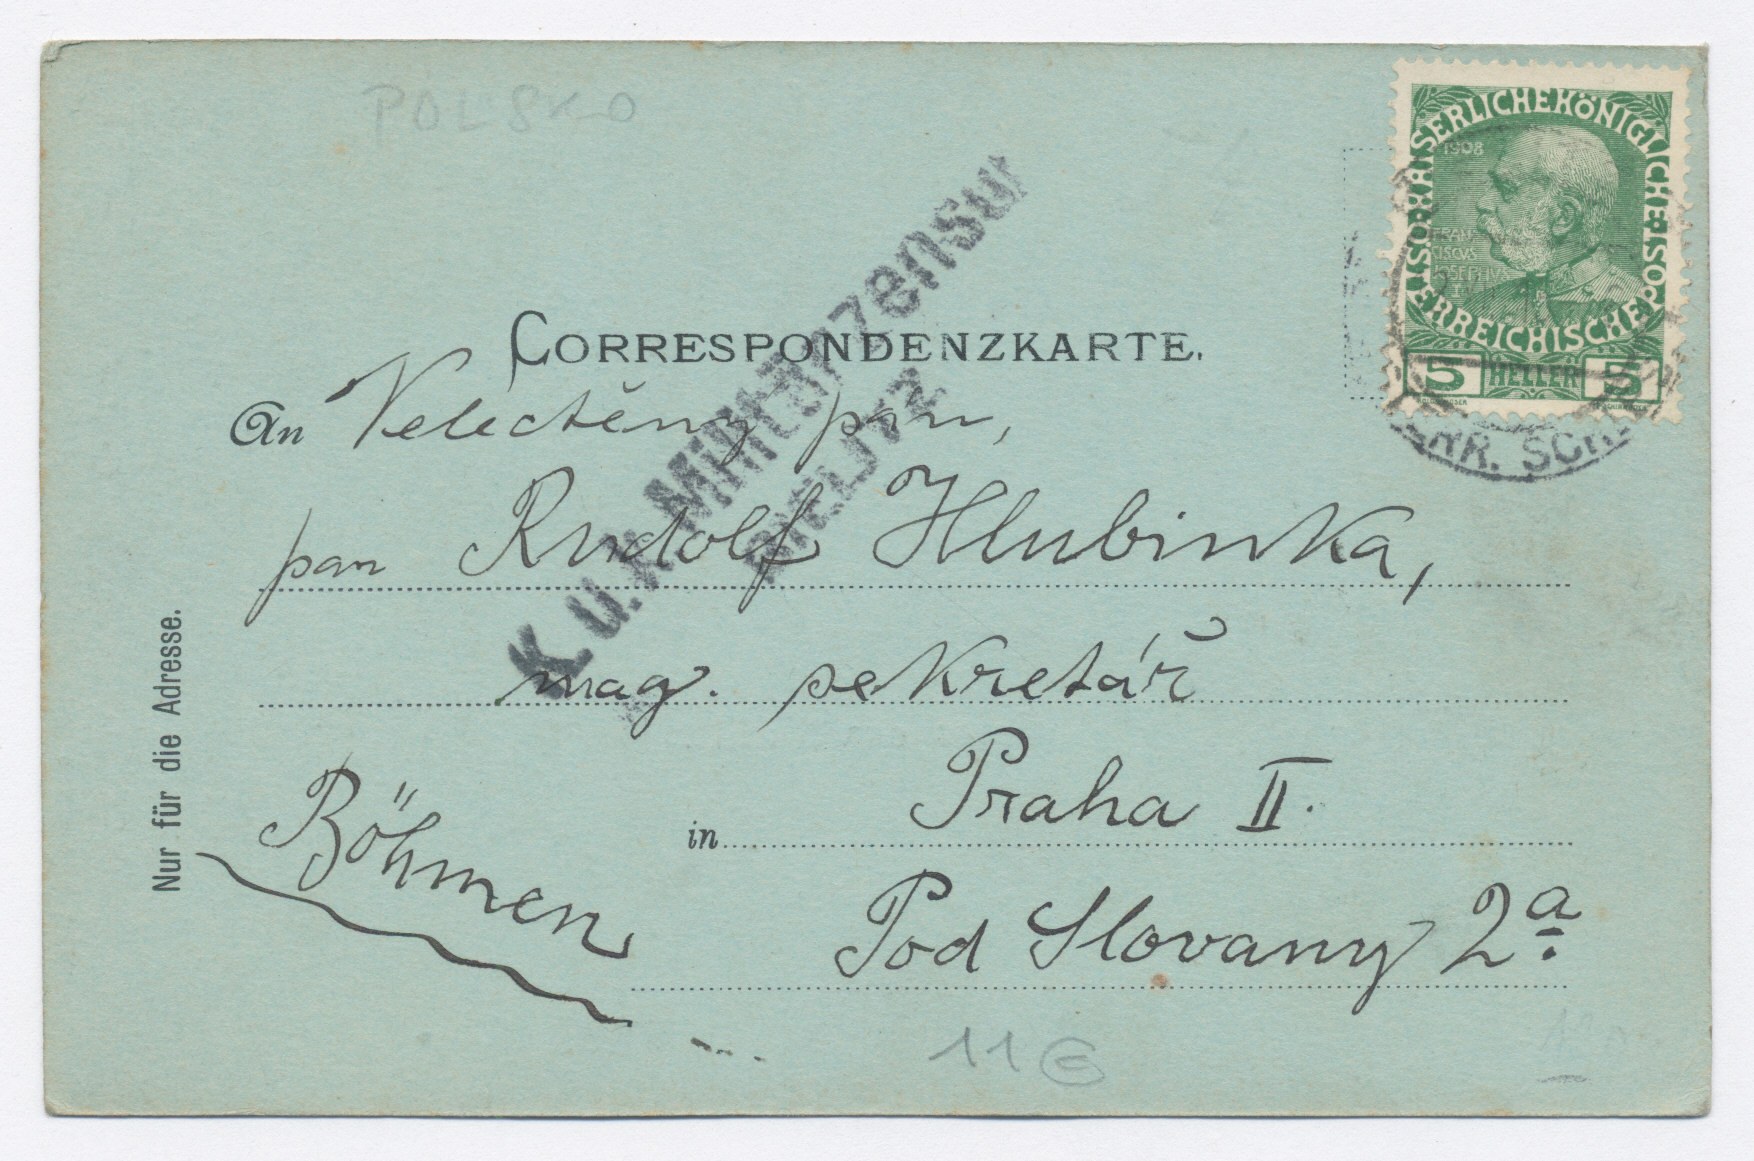 POLSKO
KAISERLICHE KÖNIGLICHE ÖSTERREICHISCHE POST
1908
FRAN
CISCVS
JOSEPHVS
I
5 HELLER 5
K. u. k. Militärzensur
BIELITZ
CORRESPONDENZKARTE.
An Velectěný pan,
pan Rudolf Hlubinka,
mag. sekretář
in Praha II.
Böhmen
Pod Slovany 2a
Nur für die Adresse.
11 €